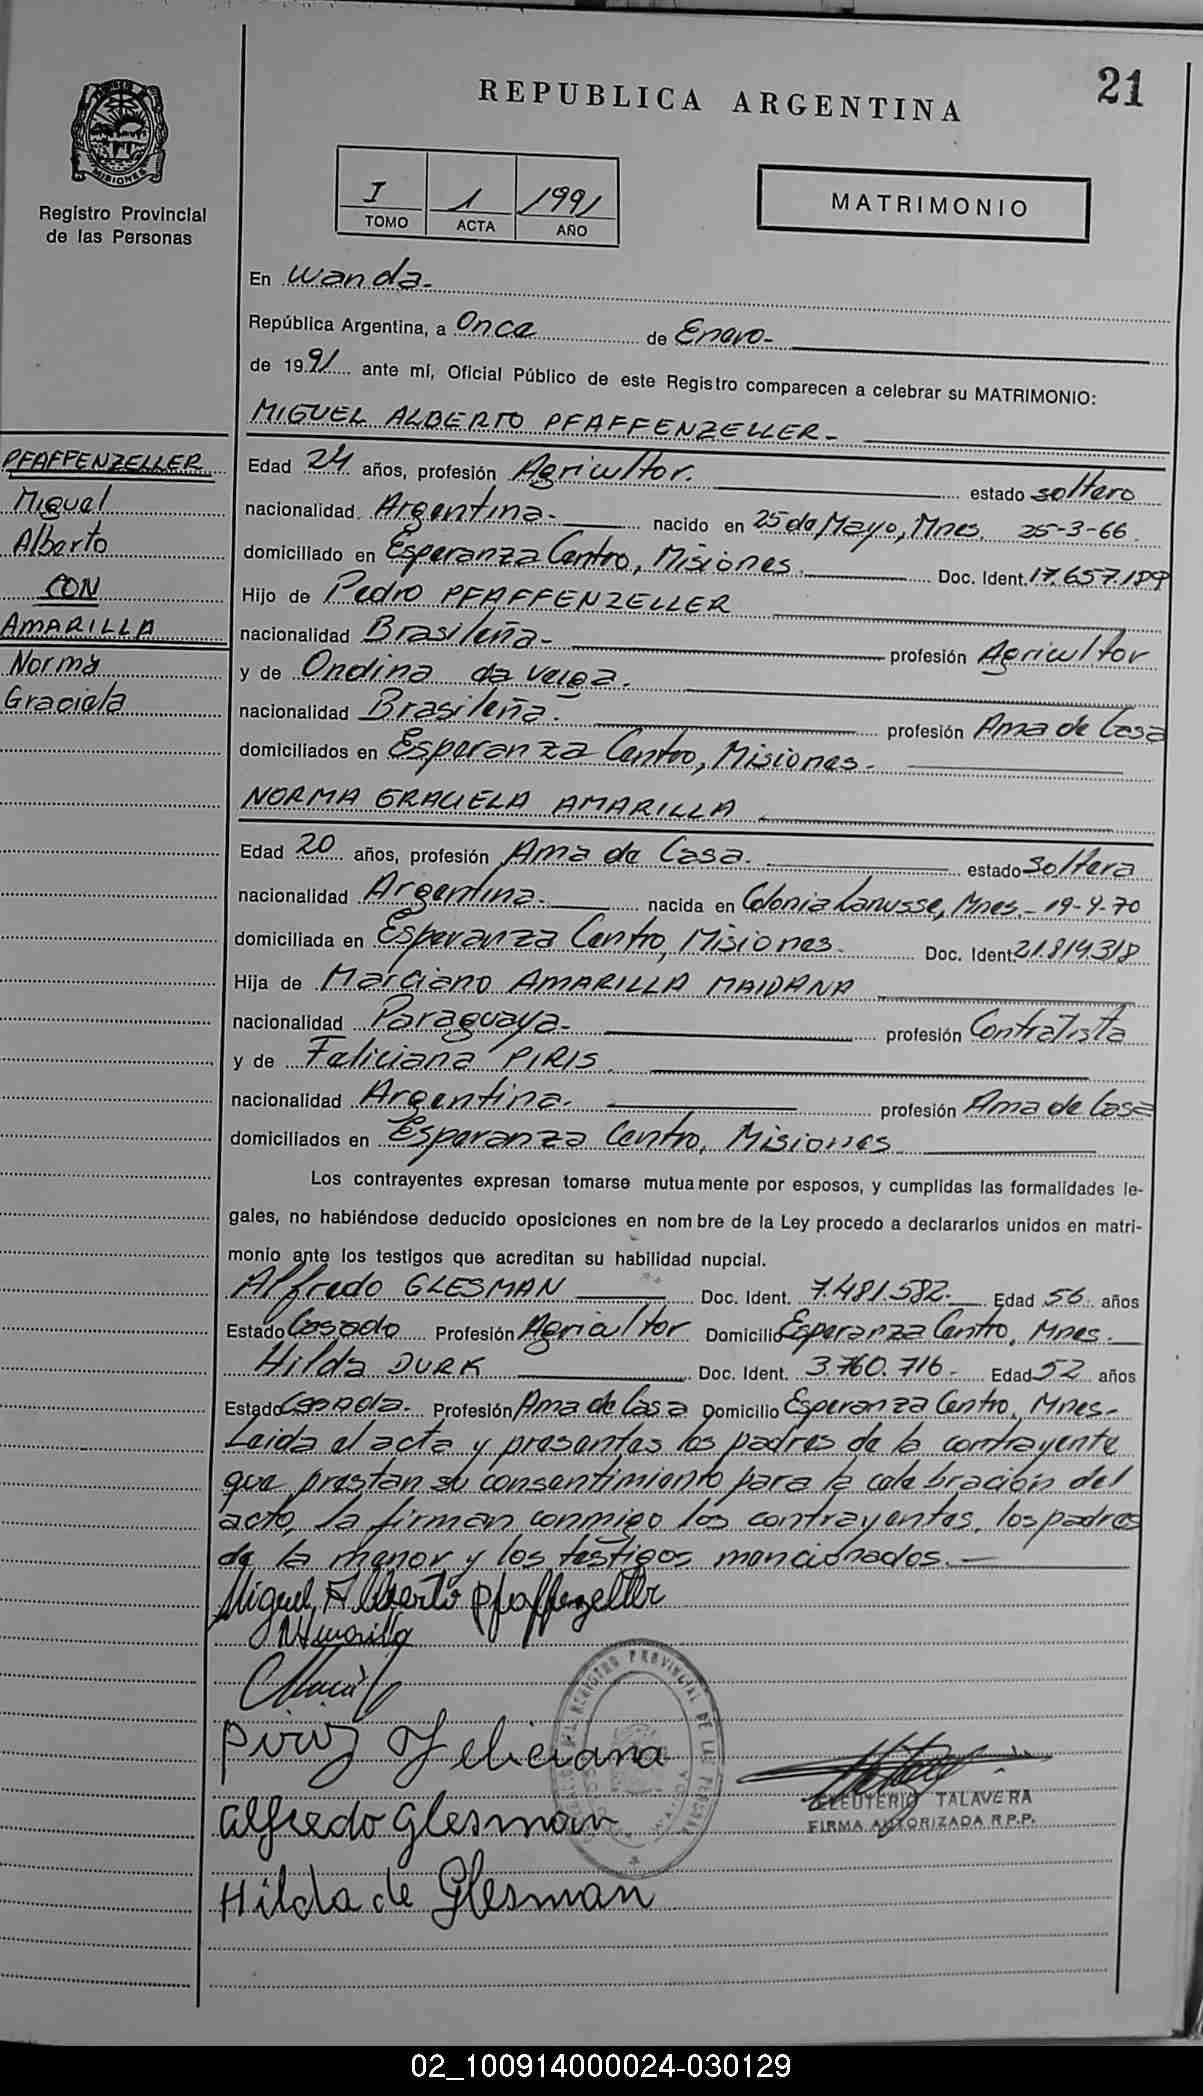 21
REPUBLICA ARGENTINA
MISIONES
Registro Provincial
de las Personas
I 1 1991
TOMO ACTA AÑO
MATRIMONIO
En Wanda.-
República Argentina, a Once de Enero.-
de 1991 ante mí, Oficial Público de este Registro comparecen a celebrar su MATRIMONIO:
MIGUEL ALBERTO PFAFFENZELLER.-
PFAFFENZELLER
Miguel
Alberto
CON
AMARILLA
Norma
Graciela
Edad 24 años, profesión Agricultor. estado soltero
nacionalidad Argentina.- nacido en 25 de Mayo, Mnes. 25-3-66.
domiciliado en Esperanza Centro, Misiones. Doc. Ident. 17.657.189
Hijo de Pedro PFAFFENZELLER
nacionalidad Brasileña.- profesión Agricultor
y de Ondina da Veiga.
nacionalidad Brasileña. profesión Ama de Casa
domiciliados en Esperanza Centro, Misiones.-
NORMA GRACIELA AMARILLA
Edad 20 años, profesión Ama de Casa. estado soltera
nacionalidad Argentina.- nacida en Colonia Lanusse, Mnes.- 19-9-70
domiciliada en Esperanza Centro, Misiones. Doc. Ident. 21.814.318
Hija de Marciano AMARILLA MAIDANA
nacionalidad Paraguaya.- profesión Contratista
y de Feliciana PIRIS.
nacionalidad Argentina. profesión Ama de Casa
domiciliados en Esperanza Centro, Misiones
Los contrayentes expresan tomarse mutuamente por esposos, y cumplidas las formalidades le-
gales, no habiéndose deducido oposiciones en nombre de la Ley procedo a declararlos unidos en matri-
monio ante los testigos que acreditan su habilidad nupcial.
Alfredo GLESMAN Doc. Ident. 7.481.582.- Edad 56 años
Estado Casado Profesión Agricultor Domicilio Esperanza Centro, Mnes.-
Hilda DURK Doc. Ident. 3.760.716.- Edad 52 años
Estado Casada.- Profesión Ama de Casa Domicilio Esperanza Centro, Mnes.-
Leida el acta y presentes los padres de la contrayente
que prestan su consentimiento para la celebración del
acto, la firman conmigo los contrayentes, los padres
de la menor y los testigos mencionados.-
Miguel Alberto Pfaffenzeller
NAmarilla
Piriz Feliciana
Alfredo Glesman
Hilda de Glesman
REGISTRO PROVINCIAL DE LAS PERSONAS
ELEUTERIO TALAVERA
FIRMA AUTORIZADA R.P.P.
02_100914000024-030129